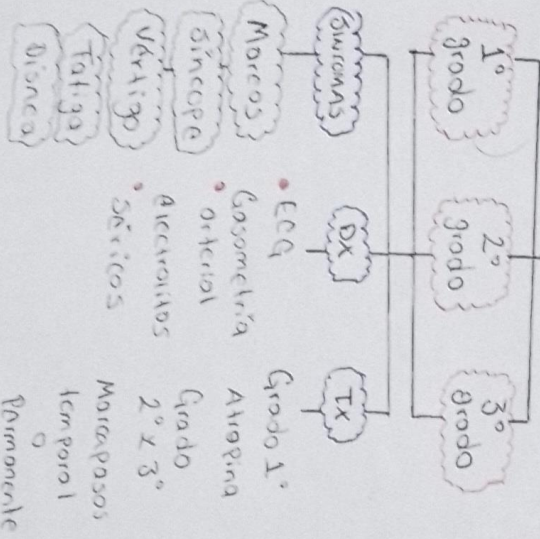 1° grado
2° grado
3° grado
Síntomas
DX
TX
Mareos
Síncope
Vértigo
Fatiga
Disnea
• ECG
Gasometría
• arterial
Alectrolitos
• Séricos
Grado 1°
Atropina
Grado
2° y 3°
Marcapasos
temporal
o
Permanente